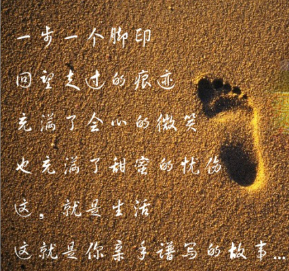 一步一个脚印
回望走过的痕迹
充满了会心的微笑
也充满了甜蜜的忧伤
这，就是生活
这就是你亲手谱写的故事...